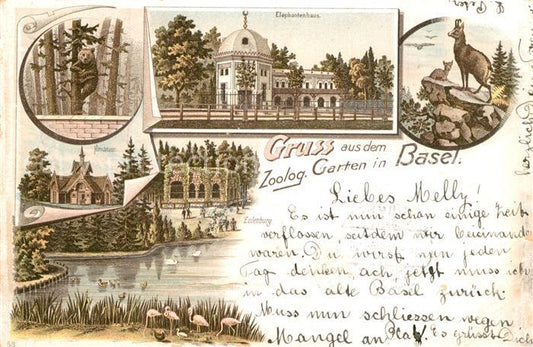 Elephantenhaus.
Gruss aus dem
Zoolog. Garten in Basel.
Eulenburg
Liebes Melly!
Es ist nun schon einige Zeit
verflossen, seitdem wir beieinander
waren. Du wirst nun jeden
Tag denken, ach, jetzt muss ich
in das alte Basel zurück.
Muss nun schliessen wegen
Mangel an Platz. Es grüsst Dich